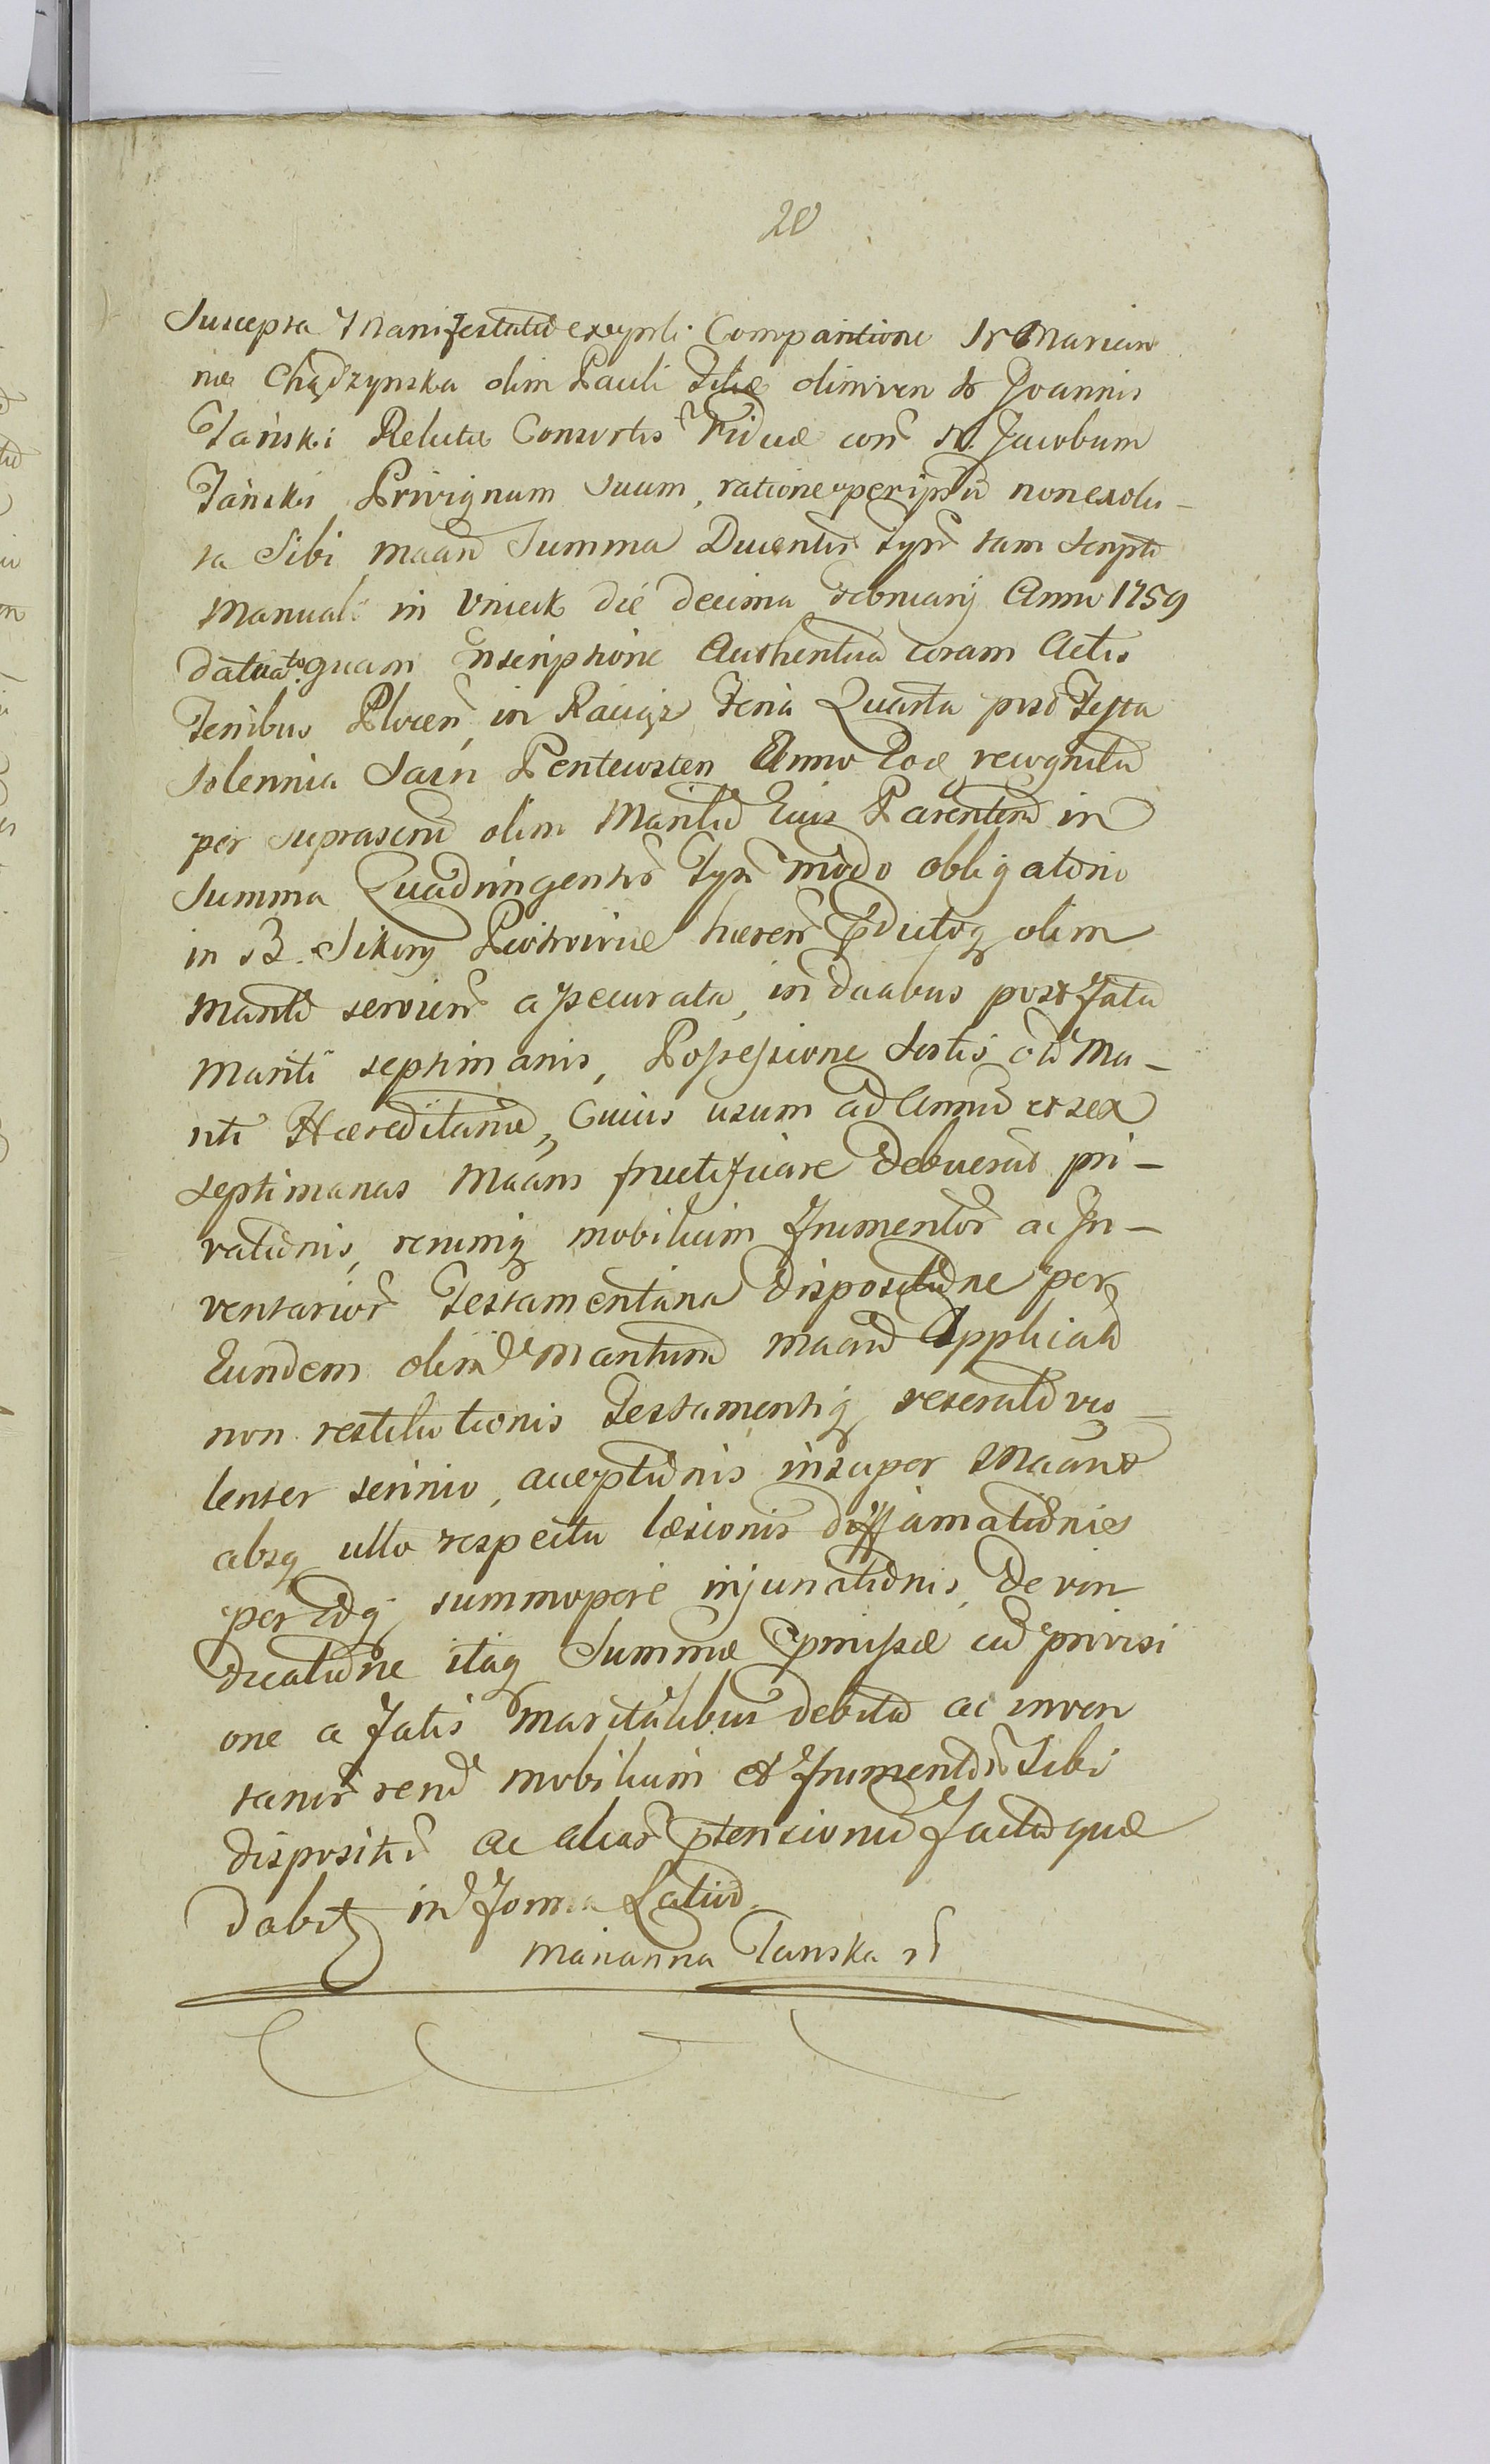 20
Suscepta Manifestatio ex cypli. Comparitione Nr Marian
næ Chądzynska olim Pauli Filiæ olim ven Nr Joannis
Tański Relictæ Consortis Viduæ con Nr Jacobum
Tański Privignum Suum, ratione per ipsū non exolu-
ta Sibi maan Summa Ducentor Typr tam Scripto
Manuali in Unieck die decima Februarij Anno 1759
dato quam Inscriptione Authentica coram Actis
Terribus Plocen, in Raciąż Feria Quarta post Festa
Solennia Sacri Pentecosten Anno Eod recognita
per suprascrm olim Maritū Eius Parentem in
Summa Quadringentor Typr modo obligatorio
in B. Sikory Piotrowice hæren dictoq olim
Marito servien assecurata, in duabus post fata
Mariti septimanis, Possessione Sortis olim Ma-
riti Hæreditariæ, Cuius usum ad Annū et sex
septimanas Maans fructificare debuerat pri-
vationis, rerumq mobilium frumentor ac In-
ventarior Testamentaria dispositione per
Eundem olim Maritum maan Applicat
non restitutionis Testamentiq reserato vio-
lenter scrinio, acceptionis insuper Maant
absq ullo respectu læsionis diffamationis
per idq summopere injuriationis, de vin
dicatione itaq Summæ pmissæ cū provisi
one a fatis Maritalibus debita ac inven
tarior rerū mobilium et frumentor Sibi
disposit ac alias ptensionū factaque
dabit in forma Latiori.
Marianna Tanska